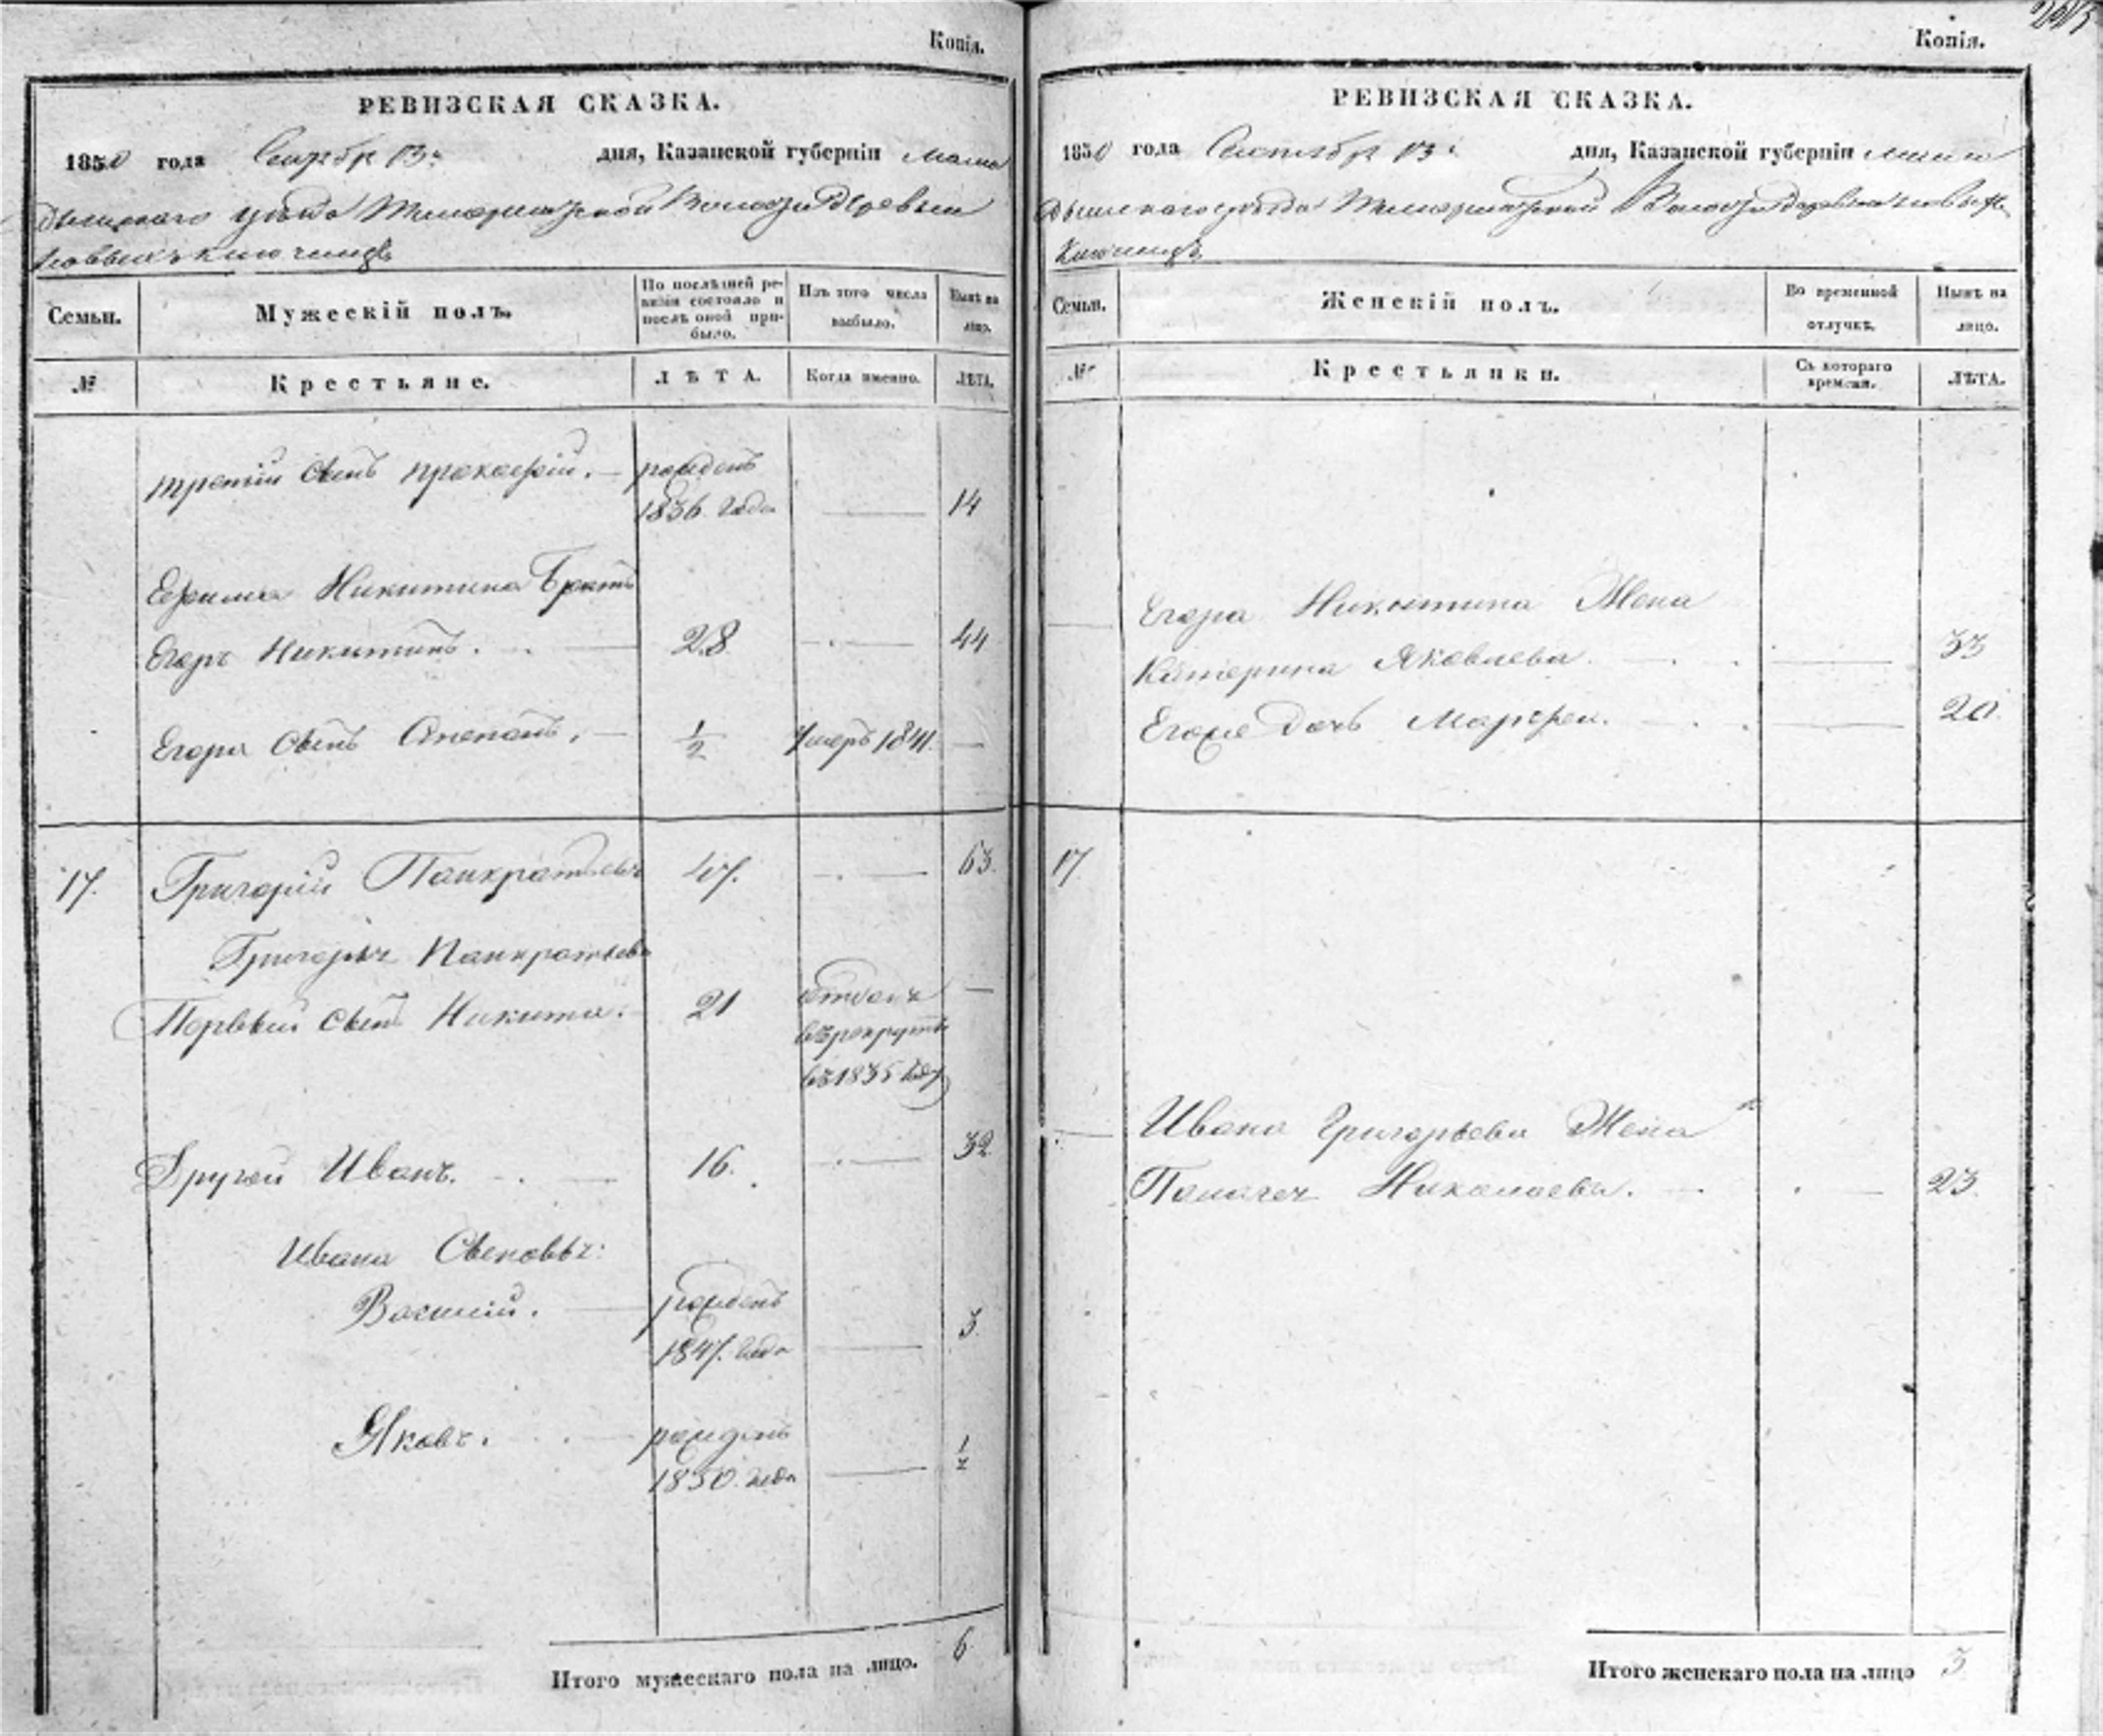 Копія.
РЕВИЗСКАЯ СКАЗКА.
1850 года Сентябр 13. дня, Казанской губерніи Мама
дышскаго уѣзда Волости Деревни
Новыхъ Ключищъ
Семьи.
Мужескій полъ.
По послѣдней ре-
визіи состояло и
послѣ оной при-
было.
Изъ того числа
выбыло.
Нынѣ на
лицо.
№
Крестьяне.
ЛѢТА.
Когда именно.
ЛѢТА.
третій сынъ Прокофій. рожденъ
1836 года 14
Ефима Никитина Братъ
Егоръ Никитинъ. 28 44
Егора сынъ Степанъ. 1/2 Умеръ 1841.
17. Григорій Панкратьевъ 47. 63.
Григорья Панкратьева
Первый сынъ Никита. 21 отданъ
въ рекруты
въ 1835 году
Другой Иванъ. 16. 32
Ивана Сыновья:
Василій. рожденъ
1847. года 3.
Яковъ. рожденъ
1850. года 1/2
Итого мужескаго пола на лицо. 6
Копія.
РЕВИЗСКАЯ СКАЗКА.
1850 года Сентября 13. дня, Казанской губерніи Мама
дышскаго уѣзда Волости деревни Новыхъ
Ключищъ
Семьи.
Женскій полъ.
Во временной
отлучкѣ.
Нынѣ на
лицо.
№
Крестьянки.
Съ котораго
времени.
ЛѢТА.
Егора Никитина Жена
Катерина Яковлева. 33
Егора дочь Марфа. 20.
17
Ивана Григорьева Жена
Пелагея Николаева. 23.
Итого женскаго пола на лицо 3